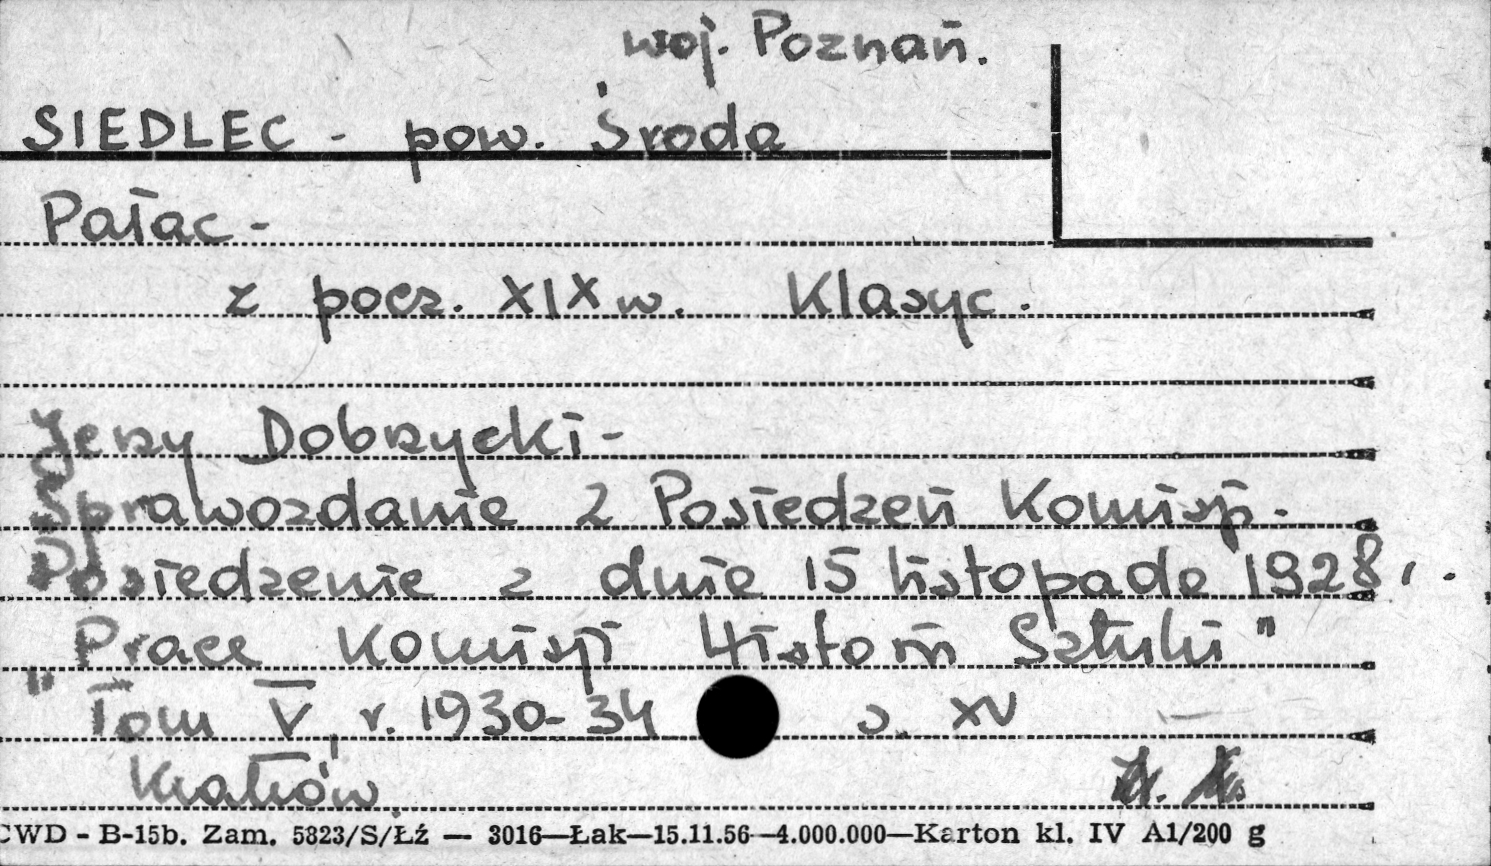 woj. Poznań.
SIEDLEC - pow. Środa
Pałac -
z pocz. XIX w. Klasyc.
Jerzy Dobrzycki -
Sprawozdanie z Posiedzeń Komisji.
Posiedzenie z dnia 15 listopada 1928 r.
"Prace Komisji Historii Sztuki"
Tom V, r. 1930-34 s. XV
Kraków.
CWD - B-15b. Zam. 5823/S/Łź — 3016—Łak—15.11.56—4.000.000—Karton kl. IV A1/200 g